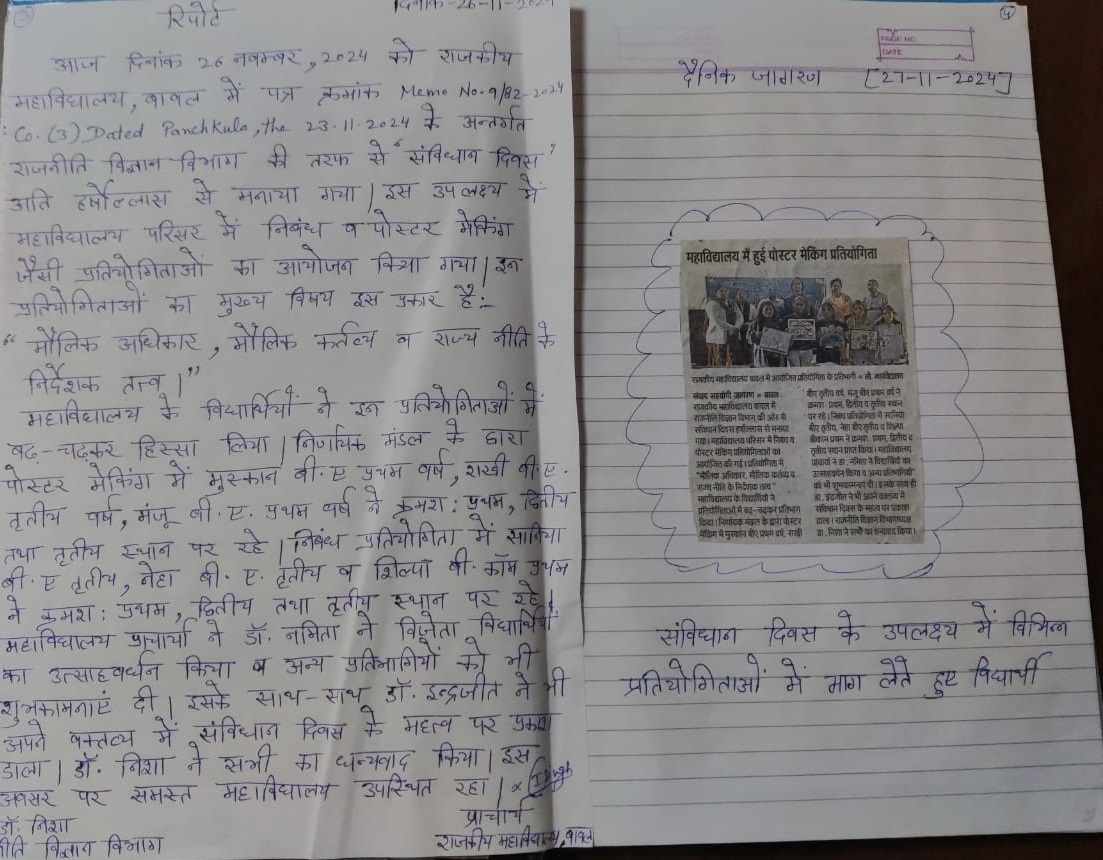 रिपोर्ट
दिनांक-26-11-2024
आज दिनांक 26 नवम्बर, 2024 को राजकीय
महाविद्यालय, बावल में पत्र क्रमांक Memo No-9/82-2024
Co. (3) Dated Panchkula, the 23.11.2024 के अन्तर्गत
राजनीति विज्ञान विभाग की तरफ से "संविधान दिवस"
अति हर्षोल्लास से मनाया गया। इस उपलक्ष्य में
महाविद्यालय परिसर में निबंध व पोस्टर मेकिंग
जैसी प्रतियोगिताओं का आयोजन किया गया। इन
प्रतियोगिताओं का मुख्य विषय इस प्रकार है:-
"मौलिक अधिकार, मौलिक कर्तव्य व राज्य नीति के
निर्देशक तत्व।"
महाविद्यालय के विद्यार्थियों ने इन प्रतियोगिताओं में
बढ़-चढ़कर हिस्सा लिया। निर्णायक मंडल के द्वारा
पोस्टर मेकिंग में मुस्कान बी.ए प्रथम वर्ष, राखी बी.ए.
तृतीय वर्ष, मंजू बी.ए. प्रथम वर्ष ने क्रमश: प्रथम, द्वितीय
तथा तृतीय स्थान पर रहे। निबंध प्रतियोगिता में सानिया
बी.ए तृतीय, नेहा बी.ए. तृतीय व शिल्पा बी.कॉम प्रथम
ने क्रमश: प्रथम, द्वितीय तथा तृतीय स्थान पर रहे।
महाविद्यालय प्राचार्या ने डॉ. नमिता ने विजेता विद्यार्थियों
का उत्साहवर्धन किया व अन्य प्रतिभागियों को भी
शुभकामनाएं दी। इसके साथ-साथ डॉ. इन्द्रजीत ने भी
अपने वक्तव्य में संविधान दिवस के महत्व पर प्रकाश
डाला। डॉ. निशा ने सभी का धन्यवाद किया। इस
अवसर पर समस्त महाविद्यालय उपस्थित रहा।
डॉ. निशा
नीति विज्ञान विभाग
प्राचार्य
राजकीय महाविद्यालय, बावल
4
PAGE NO.
DATE
दैनिक जागरण [27-11-2024]
महाविद्यालय में हुई पोस्टर मेकिंग प्रतियोगिता
राजकीय महाविद्यालय बावल में आयोजित प्रतियोगिता के प्रतिभागी • सौ. महाविद्यालय
संवाद सहयोगी जागरण • बावल:
राजकीय महाविद्यालय बावल में
राजनीति विज्ञान विभाग की ओर से
संविधान दिवस हर्षोल्लास से मनाया
गया। महाविद्यालय परिसर में निबंध व
पोस्टर मेकिंग प्रतियोगिताओं का
आयोजित की गई। प्रतियोगिता में
"मौलिक अधिकार, मौलिक कर्तव्य व
राज्य नीति के निदेशक तत्व"
महाविद्यालय के विद्यार्थियों ने
प्रतियोगिताओं में बढ़-चढ़कर प्रतिभाग
किया। निर्णायक मंडल के द्वारा पोस्टर
मेकिंग में मुस्कान बीए प्रथम वर्ष, राखी
बीए तृतीय वर्ष, मंजू बीए प्रथम वर्ष ने
क्रमश: प्रथम, द्वितीय व तृतीय स्थान
पर रहे। निबंध प्रतियोगिता में सानिया
बीए तृतीय, नेहा बीए तृतीय व शिल्पा
बीकाम प्रथम ने क्रमश: प्रथम, द्वितीय व
तृतीय स्थान प्राप्त किया। महाविद्यालय
प्राचार्या ने डा. नमिता ने विद्यार्थियों का
उत्साहवर्धन किया व अन्य प्रतिभागियों
को भी शुभकामनाएं दी। इसके साथ ही
डा. इंद्रजीत ने भी अपने वक्तव्य में
संविधान दिवस के महत्व पर प्रकाश
डाला। राजनीति विज्ञान विभागाध्यक्ष
डा. निशा ने सभी का धन्यवाद किया।
संविधान दिवस के उपलक्ष्य में विभिन्न
प्रतियोगिताओं में भाग लेते हुए विद्यार्थी